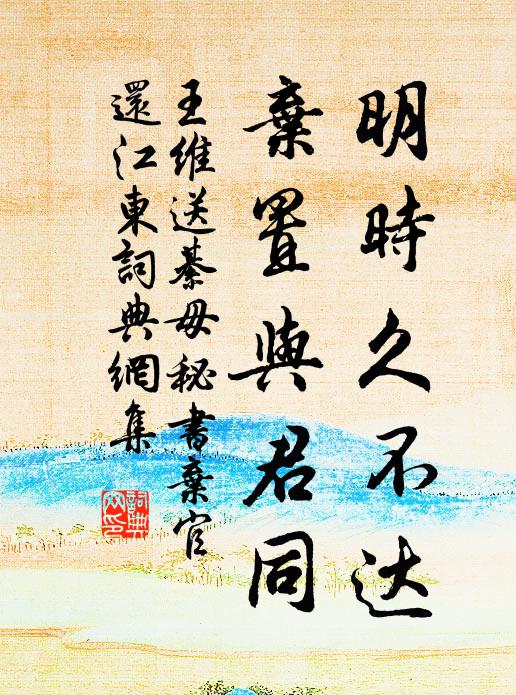 明時久不达
棄置與君同
王維送綦毋秘書棄官
還江東詞典網集